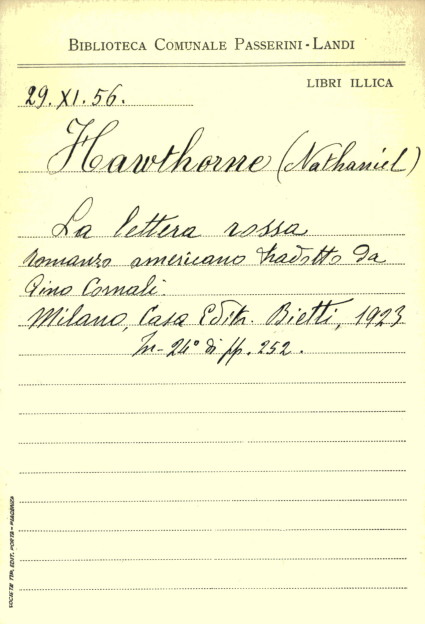 BIBLIOTECA COMUNALE PASSERINI-LANDI
LIBRI ILLICA
29. XI. 56.
Hawthorne (Nathaniel)
La lettera rossa
romanzo americano tradotto da
Gino Cornali.
Milano, Casa Editr. Bietti, 1923
In-24° di pp. 252.
SOCIETÀ TIP. EDIT. PORTA - PIACENZA